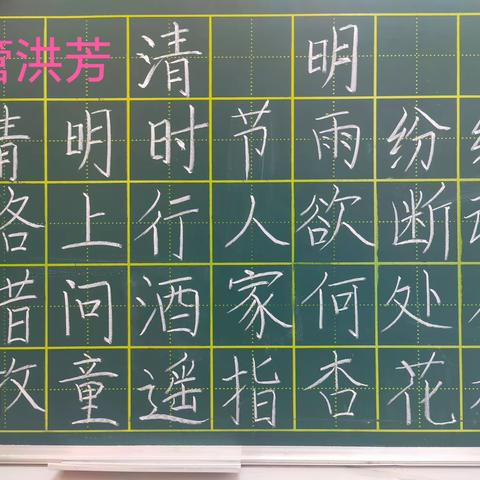 管洪芳
清明
清明时节雨纷
路上行人欲断
借问酒家何处
牧童遥指杏花